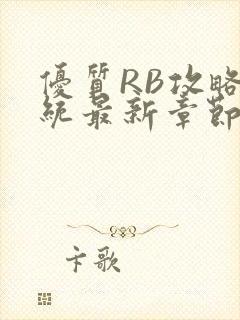 優質RB攻略
統最新章節
卡歌